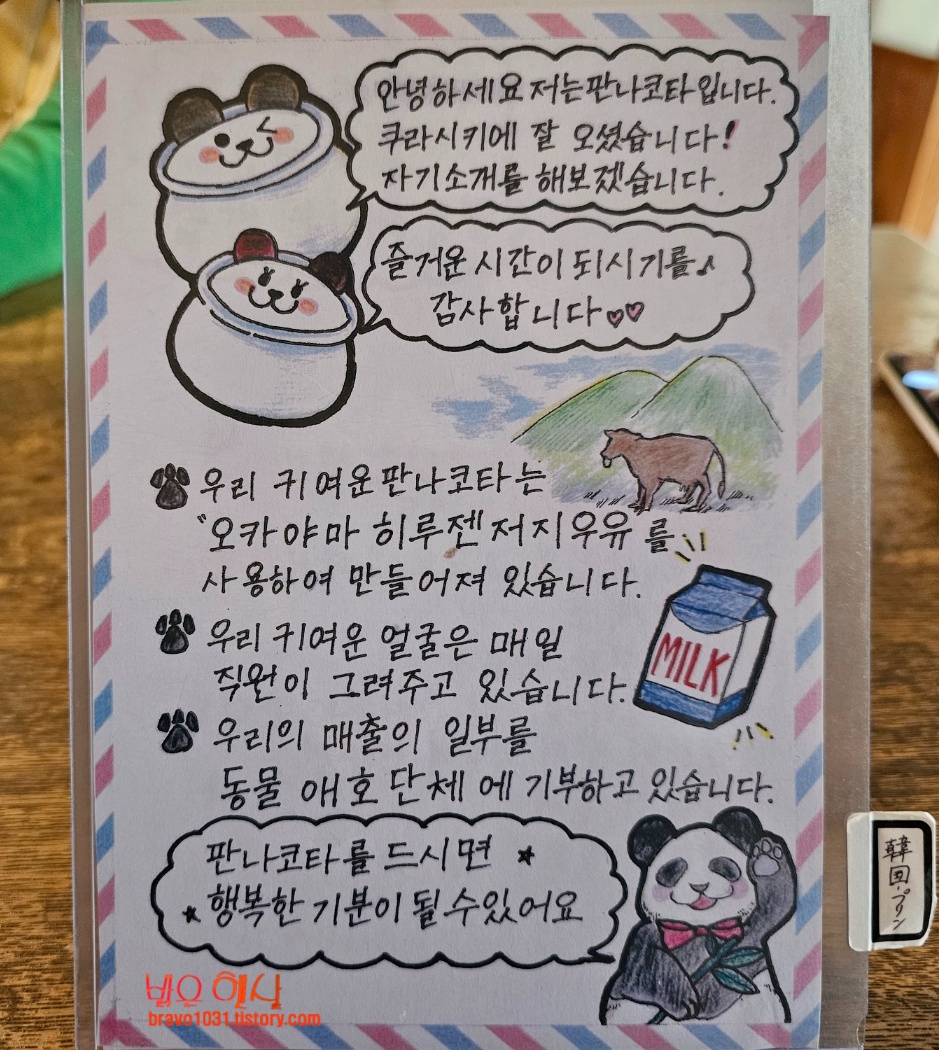 안녕하세요 저는 판나코타입니다.
쿠라시키에 잘 오셨습니다!
자기소개를 해보겠습니다.
즐거운 시간이 되시기를♪
감사합니다♡♡
우리 귀여운 판나코타는
"오카야마 히루젠 저지우유"를
사용하여 만들어져 있습니다.
MILK
우리 귀여운 얼굴은 매일
직원이 그려주고 있습니다.
우리의 매출의 일부를
동물 애호 단체에 기부하고 있습니다.
판나코타를 드시면 ★
★ 행복한 기분이 될 수 있어요
韓国・プリン
bravo1031.tistory.com